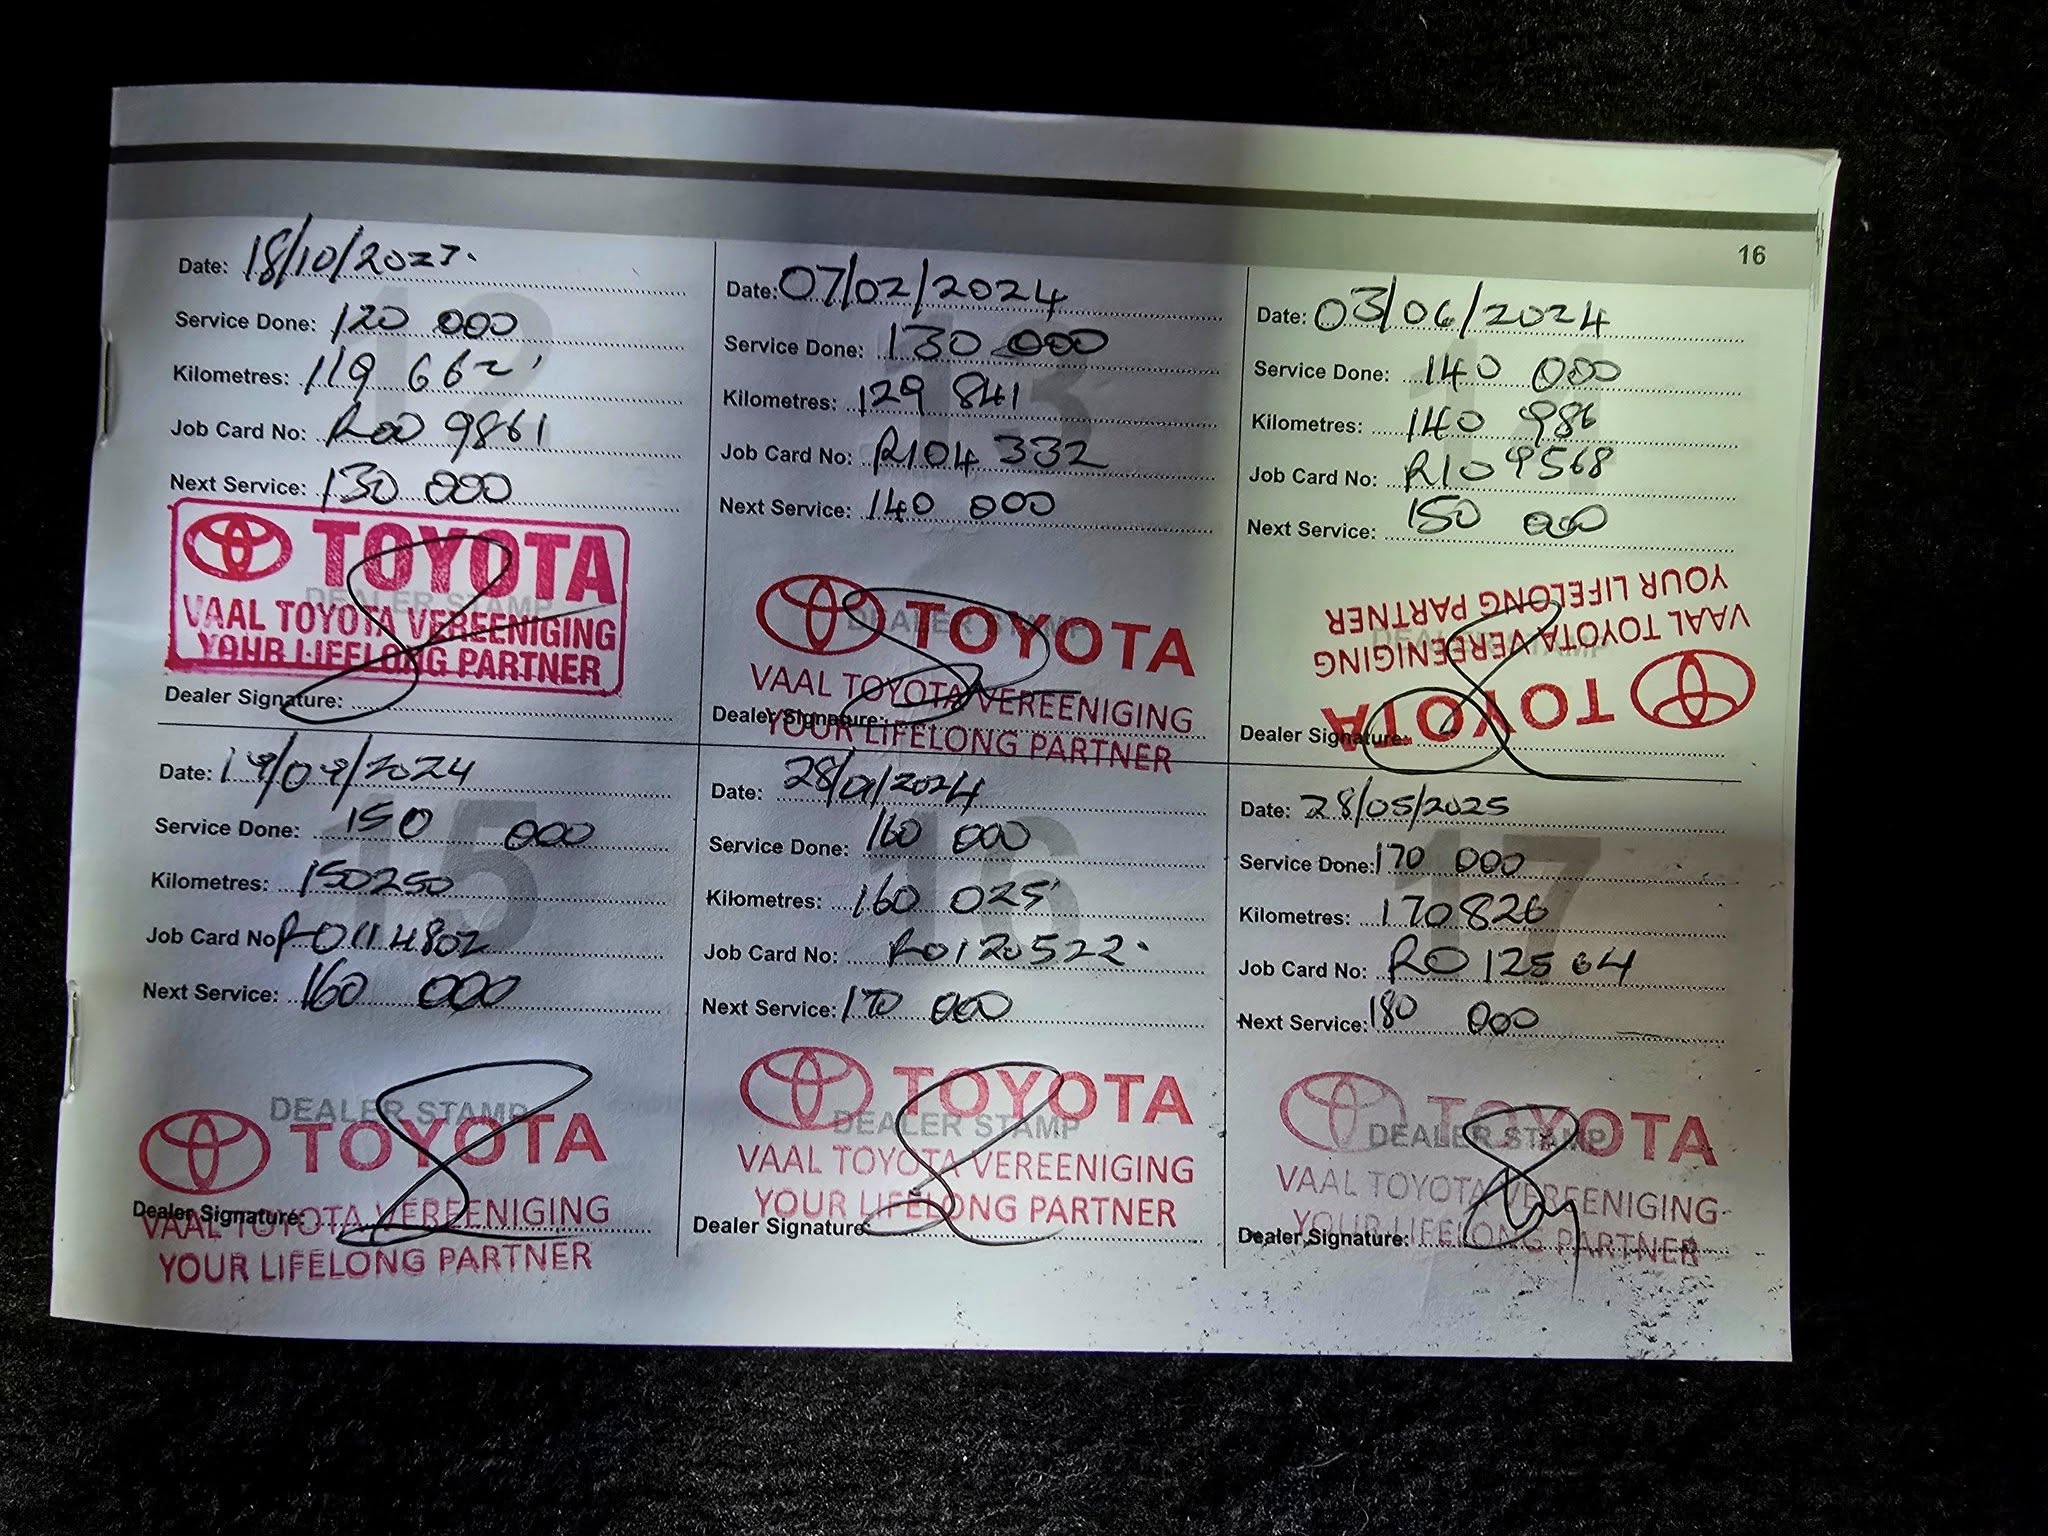 16
Date: 18/10/2023.
Service Done: 120 000
Kilometres: 119 662
Job Card No: R00 9861
Next Service: 130 000
12
DEALER STAMP
TOYOTA
VAAL TOYOTA VEREENIGING
YOUR LIFELONG PARTNER
Dealer Signature:
Date: 07/02/2024
Service Done: 130 000
Kilometres: 129 841
Job Card No: R104 332
Next Service: 140 000
13
DEALER STAMP
TOYOTA
VAAL TOYOTA VEREENIGING
YOUR LIFELONG PARTNER
Dealer Signature:
Date: 03/06/2024
Service Done: 140 000
Kilometres: 140 986
Job Card No: R109568
Next Service: 150 000
14
DEALER STAMP
TOYOTA
VAAL TOYOTA VEREENIGING
YOUR LIFELONG PARTNER
Dealer Signature:
Date: 19/09/2024
Service Done: 150 000
Kilometres: 150250
Job Card No: R0114802
Next Service: 160 000
15
DEALER STAMP
TOYOTA
VAAL TOYOTA VEREENIGING
YOUR LIFELONG PARTNER
Dealer Signature:
Date: 28/01/2024
Service Done: 160 000
Kilometres: 160 025
Job Card No: R0120522.
Next Service: 170 000
16
DEALER STAMP
TOYOTA
VAAL TOYOTA VEREENIGING
YOUR LIFELONG PARTNER
Dealer Signature:
Date: 28/05/2025
Service Done: 170 000
Kilometres: 170826
Job Card No: RO 125 64
Next Service: 180 000
17
DEALER STAMP
TOYOTA
VAAL TOYOTA VEREENIGING
YOUR LIFELONG PARTNER
Dealer Signature: